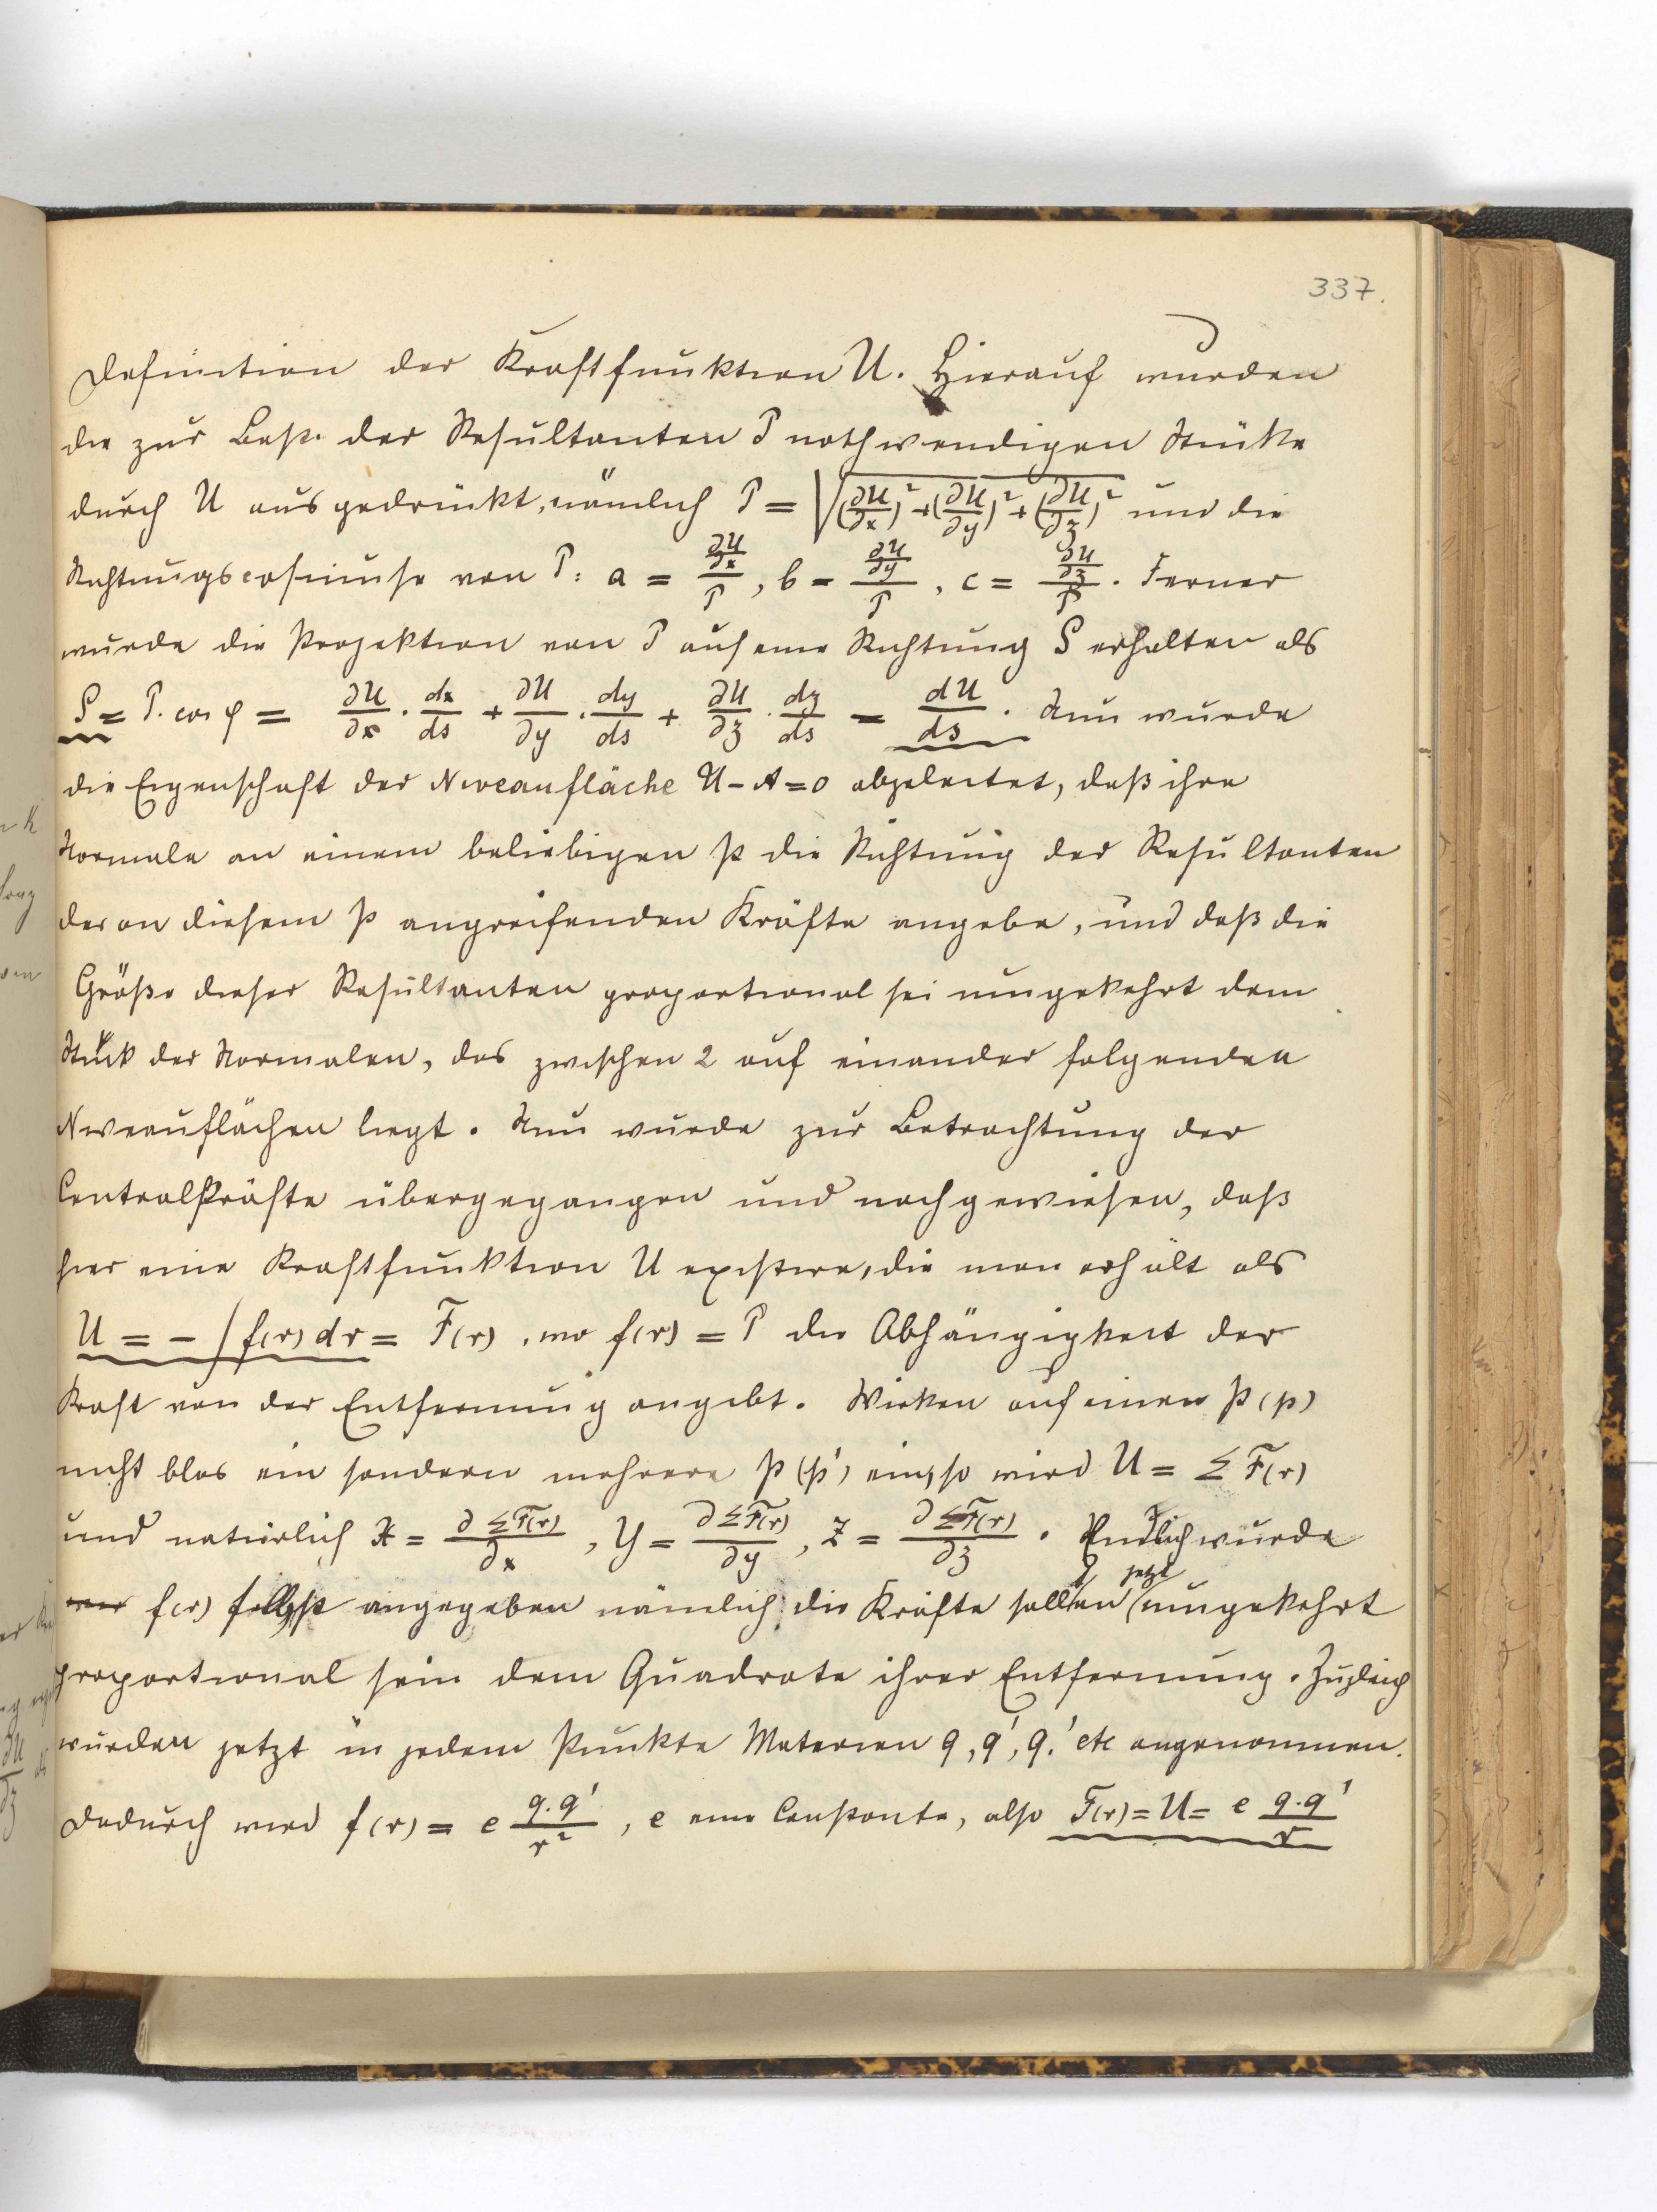 337.
Definition der Kraftfunktion U. Hierauf wurden
die zur Best. der Resultanten P nothwendigen Stücke
durch U ausgedrückt, nämlich P = √((∂U/∂x)² + (∂U/∂y)² + (∂U/∂z)²) und die
Richtungscosinuse von P: a = (∂U/∂x)/P, b = (∂U/∂y)/P, c = (∂U/∂z)/P. Ferner
wurde die Projektion von P auf eine Richtung S erhalten als
S = P. cos φ = ∂U/∂x · dx/ds + ∂U/∂y · dy/ds + ∂U/∂z · dz/ds = dU/ds. Nun wurde
die Eigenschaft der Niveaufläche U - A = 0 abgeleitet, daß ihre
Normale an einem beliebigen p die Richtung der Resultanten
der an diesem p angreifenden Kräfte angebe, und daß die
Größe dieser Resultanten proportional sei umgekehrt dem
Stück der Normalen, das zwischen 2 auf einander folgenden
Niveauflächen liegt. Nun wurde zur Betrachtung der
Centralkräfte übergegangen und nachgewiesen, daß
hier eine Kraftfunktion U existire, die man erhält als
U = - ∫ f(r) dr = F(r), wo f(r) = P die Abhängigkeit der
Kraft von der Entfernung angibt. Wirken auf einen p (p)
nicht blos ein sondern mehrere p (p') ein, so wird U = Σ F(r)
und natürlich X = ∂ΣF(r)/∂x, Y = ∂ΣF(r)/∂y, Z = ∂ΣF(r)/∂z. Endlich wurde
f(r) selbst angegeben nämlich: die Kräfte sollten jetzt umgekehrt
proportional sein dem Quadrate ihrer Entfernung. Zugleich
wurden jetzt in jedem Punkte Materien q, q', q,' etc angenommen.
Dadurch wird f(r) = e q.q'/r², e eine Constante, also F(r) = U = e q.q'/r